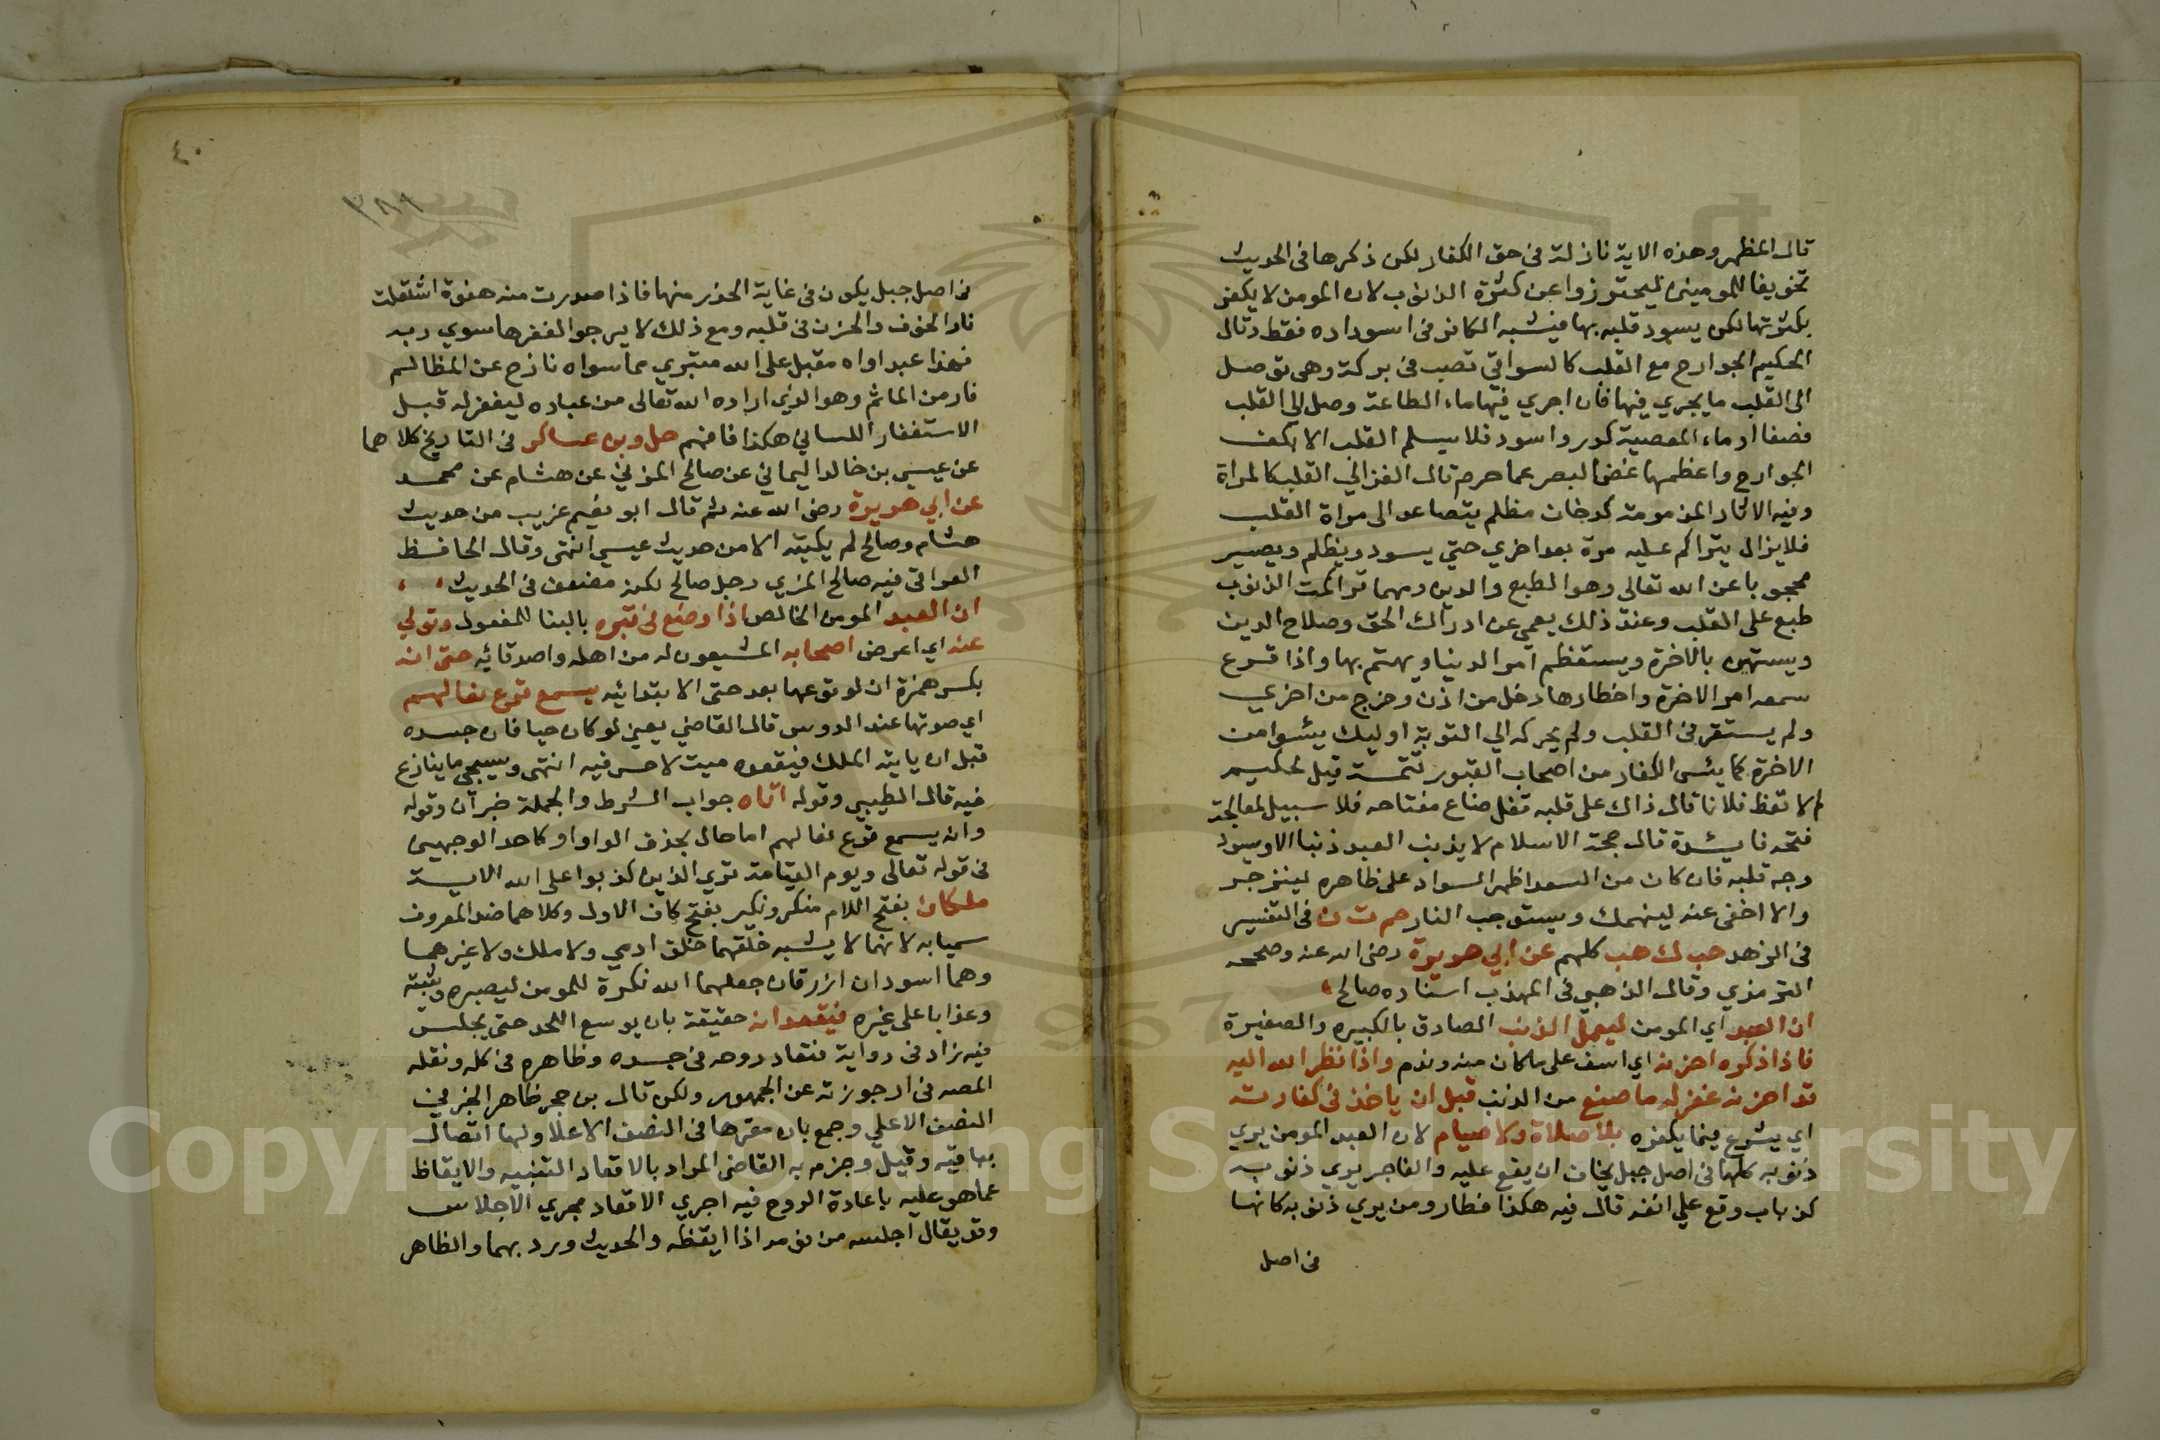 قال المظهر وهذه الاية نازلة في حق الكفار لكن ذكرها في الحديث
تخويفا للمومنين ليحترزوا عن كثرة الذنوب لان المومن لا يكفر
بكثرتها لكن يسود قلبه بها فيشبه الكافر في اسوداده فقط وقال
الحكيم الجوارح مع القلب كالسواقي تصب في بركة وهي توصل
الى القلب ما يجري فيها فان اجري فيها ماء الطاعة وصل الى القلب
فصفا او ماء المعصية كدر واسود فلا يسلم القلب الا بكف
الجوارح واعظمها غض البصر عما حرم قال الغزالي القلب كالمراة
وفيه الاثار المذمومة كدخان مظلم يتصاعد الى مراة القلب
فلا يزال يتراكم عليه مرة بعد اخري حتي يسود ويظلم ويصير
محجوبا عن الله تعالى وهو الطبع والرين ومهما تراكمت الذنوب
طبع على القلب وعند ذلك يعمي عن ادراك الحق وصلاح الدين
ويستهين بالاخرة ويستعظم امر الدنيا ويهتم بها واذا قرع
سمعه امر الاخرة واخطارها دخل من اذن وخرج من اخري
ولم يستقر في القلب ولم يحركه الي التوبة اوليك يئسوا من
الاخرة كما يئس الكفار من اصحاب القبور تتمة قيل لحكيم
لم لا تعظ فلانا قال ذاك على قلبه قفل ضاع مفتاحه فلا سبيل لمعالجة
فتحه فايدة قال حجة الاسلام لا يذنب العبد ذنبا الا ويسود
وجه قلبه فان كان من السعدا ظهر السواد على ظاهره لينزجر
والا اخفى عنه لينهمك ويستوجب النار حم ت ن في التفسير
في الزهد حب ك هب كلهم عن ابي هريرة رضى الله عنه وصححه
الترمذي وقال الذهبي في المهذب اسناده صالح
ان العبد اي المومن ليعمل الذنب الصادق بالكبيره والصغيرة
فاذا ذكره احزنه اي اسف على ما كان منه وندم واذا نظر الله اليه
قد احزنه غفر له ما صنع من الذنب قبل ان ياخذ في كفارته
اي يشرع فيما يكفره بلا صلاة ولا صيام لان العبد المومن يري
ذنوبه كلها في اصل جبل يخاف ان يقع عليه والفاجر يري ذنوبه
كذباب وقع علي انفه قال فيه هكذا فطار ومن يري ذنوبه كانها
في اصل
٤٠
٣٨٩
في اصل جبل يكون في غاية الحذر منها فاذا صدرت منه هفوة اشتعلت
نار الخوف والحزن في قلبه ومع ذلك لا يرجو الغفرها سوي ربه
فهذا عبد اواه مقبل على الله متبري مما سواه نازح عن المظالم
فار من الماثم وهو الذي اراده الله تعالى من عباده ليغفر له قبل
الاستغفار اللساني هكذا فافهم حل وبن عساكر في التاريخ كلاهما
عن عيسى بن خالد اليماني عن صالح المزني عن هشام عن محمد
عن ابي هريرة رضى الله عنه ثم قال ابو نعيم غريب من حديث
هشام وصالح لم يكتبه الا من حديث عيسى انتهى وقال الحافظ
العراقي فيه صالح المزي رجل صالح لكنه مضعف في الحديث
ان العبد المومن الخالص اذا وضع في قبره بالبنا للمفعول وتولي
عنه اي اعرض اصحابه المشيعون له من اهله واصدقائه حتى انه
بكسر همزة ان لوقوعها بعد حتى الابتدائيه يسمع قرع نعالهم
اي صوتها عند الدوس قال القاضي يعني لو كان حيا فان جسده
قبل ان ياتيه الملك فيقعده ميت لا حس فيه انتهى وسيجي ما ينازع
فيه قال الطيبي وقوله اتاه جواب الشرط والجملة خبر ان وقوله
وانه يسمع قرع نعالهم اما حال بحذف الواو او كاحد الوجهين
في قوله تعالى ويوم القيامة تري الذين كذبوا على الله الاية
ملكان بفتح اللام منكر ونكير بفتح كاف الاول وكلاهما ضد المعروف
سميا به لانهما لا يشبه خلقهما خلق ادمي ولا ملك ولا غيرهما
وهما اسودان ازرقان جعلهما الله نكرة للمومن ليبصره ويثبته
وعذابا على غيره فيقعدانه حقيقة بان يوسع اللحد حتي يجلس
فيه زاد في رواية فتعاد روحه في جسده وظاهره في كله ونقله
المصه في ارجوزته عن الجمهور ولكن قال بن حجر ظاهر الخبر في
النصف الاعلي وجمع بان مقرها في النصف الاعلا ولها اتصال
بباقيه وقيل وجزم به القاضى المراد بالاقعاد التنبيه والايقاظ
عما هو عليه باعادة الروح فيه اجري الاقعاد مجري الاجلاس
وقد يقال اجلسه من نومه اذا ايقظه والحديث ورد بهما والظاهر
Copyright © King Saud University
1957